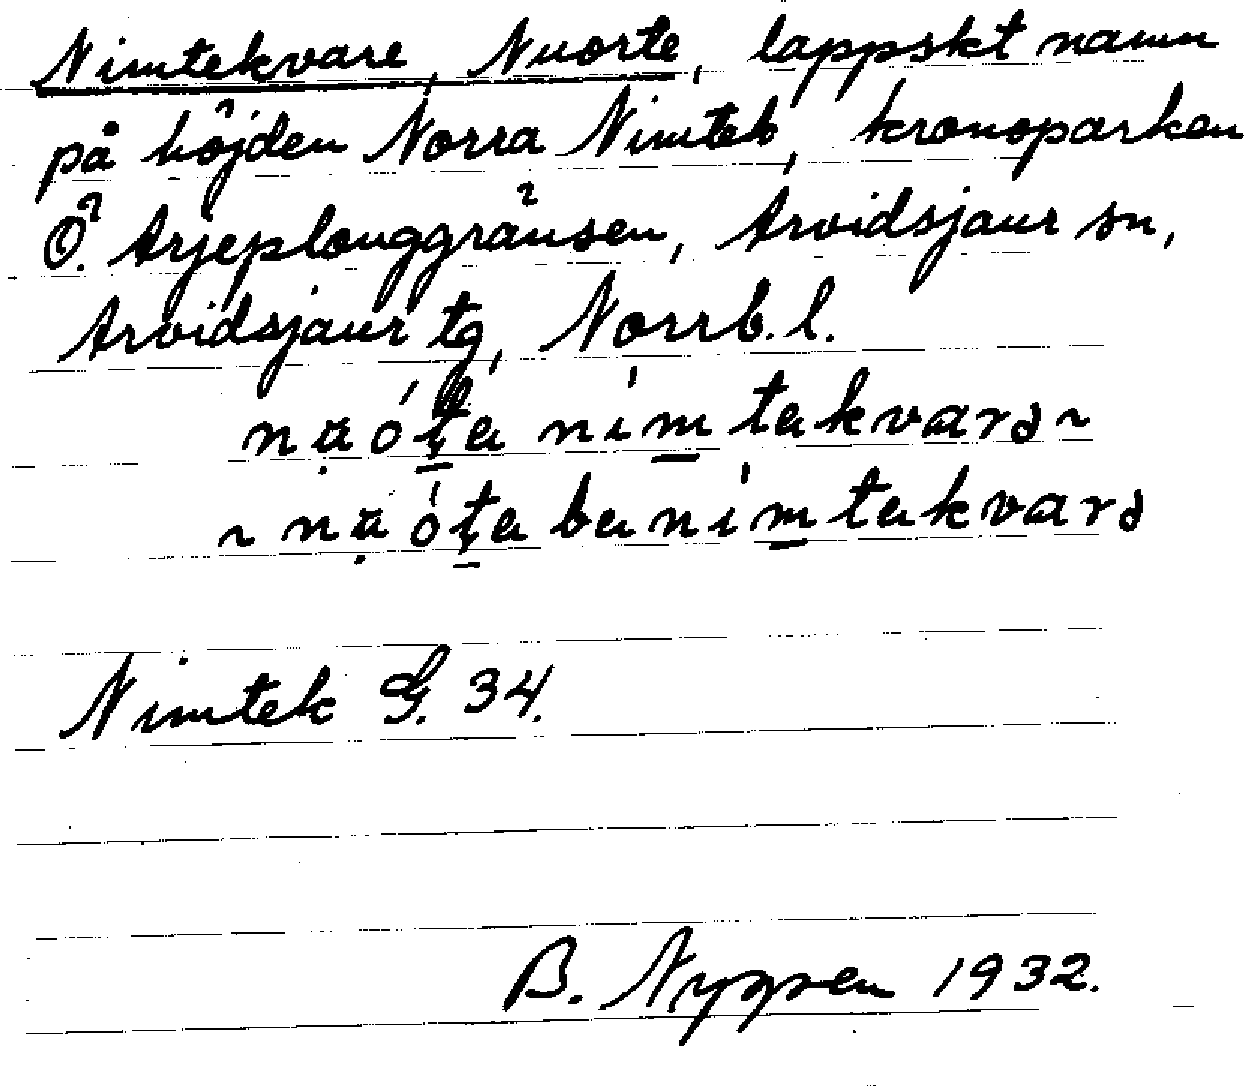 Nimtekvare, Nuorte, lappskt namn
på höjden Norra Nimtek, kronoparken
Ö. Arjeplouggränsen, Arvidsjaur sn,
Arvidsjaur tg, Norrb. l.
nạ̈óṭa nim takvarə ~
~ nạ̈óṭa ba nim takvarə
Nimtek G. 34.
B. Nygren 1932.